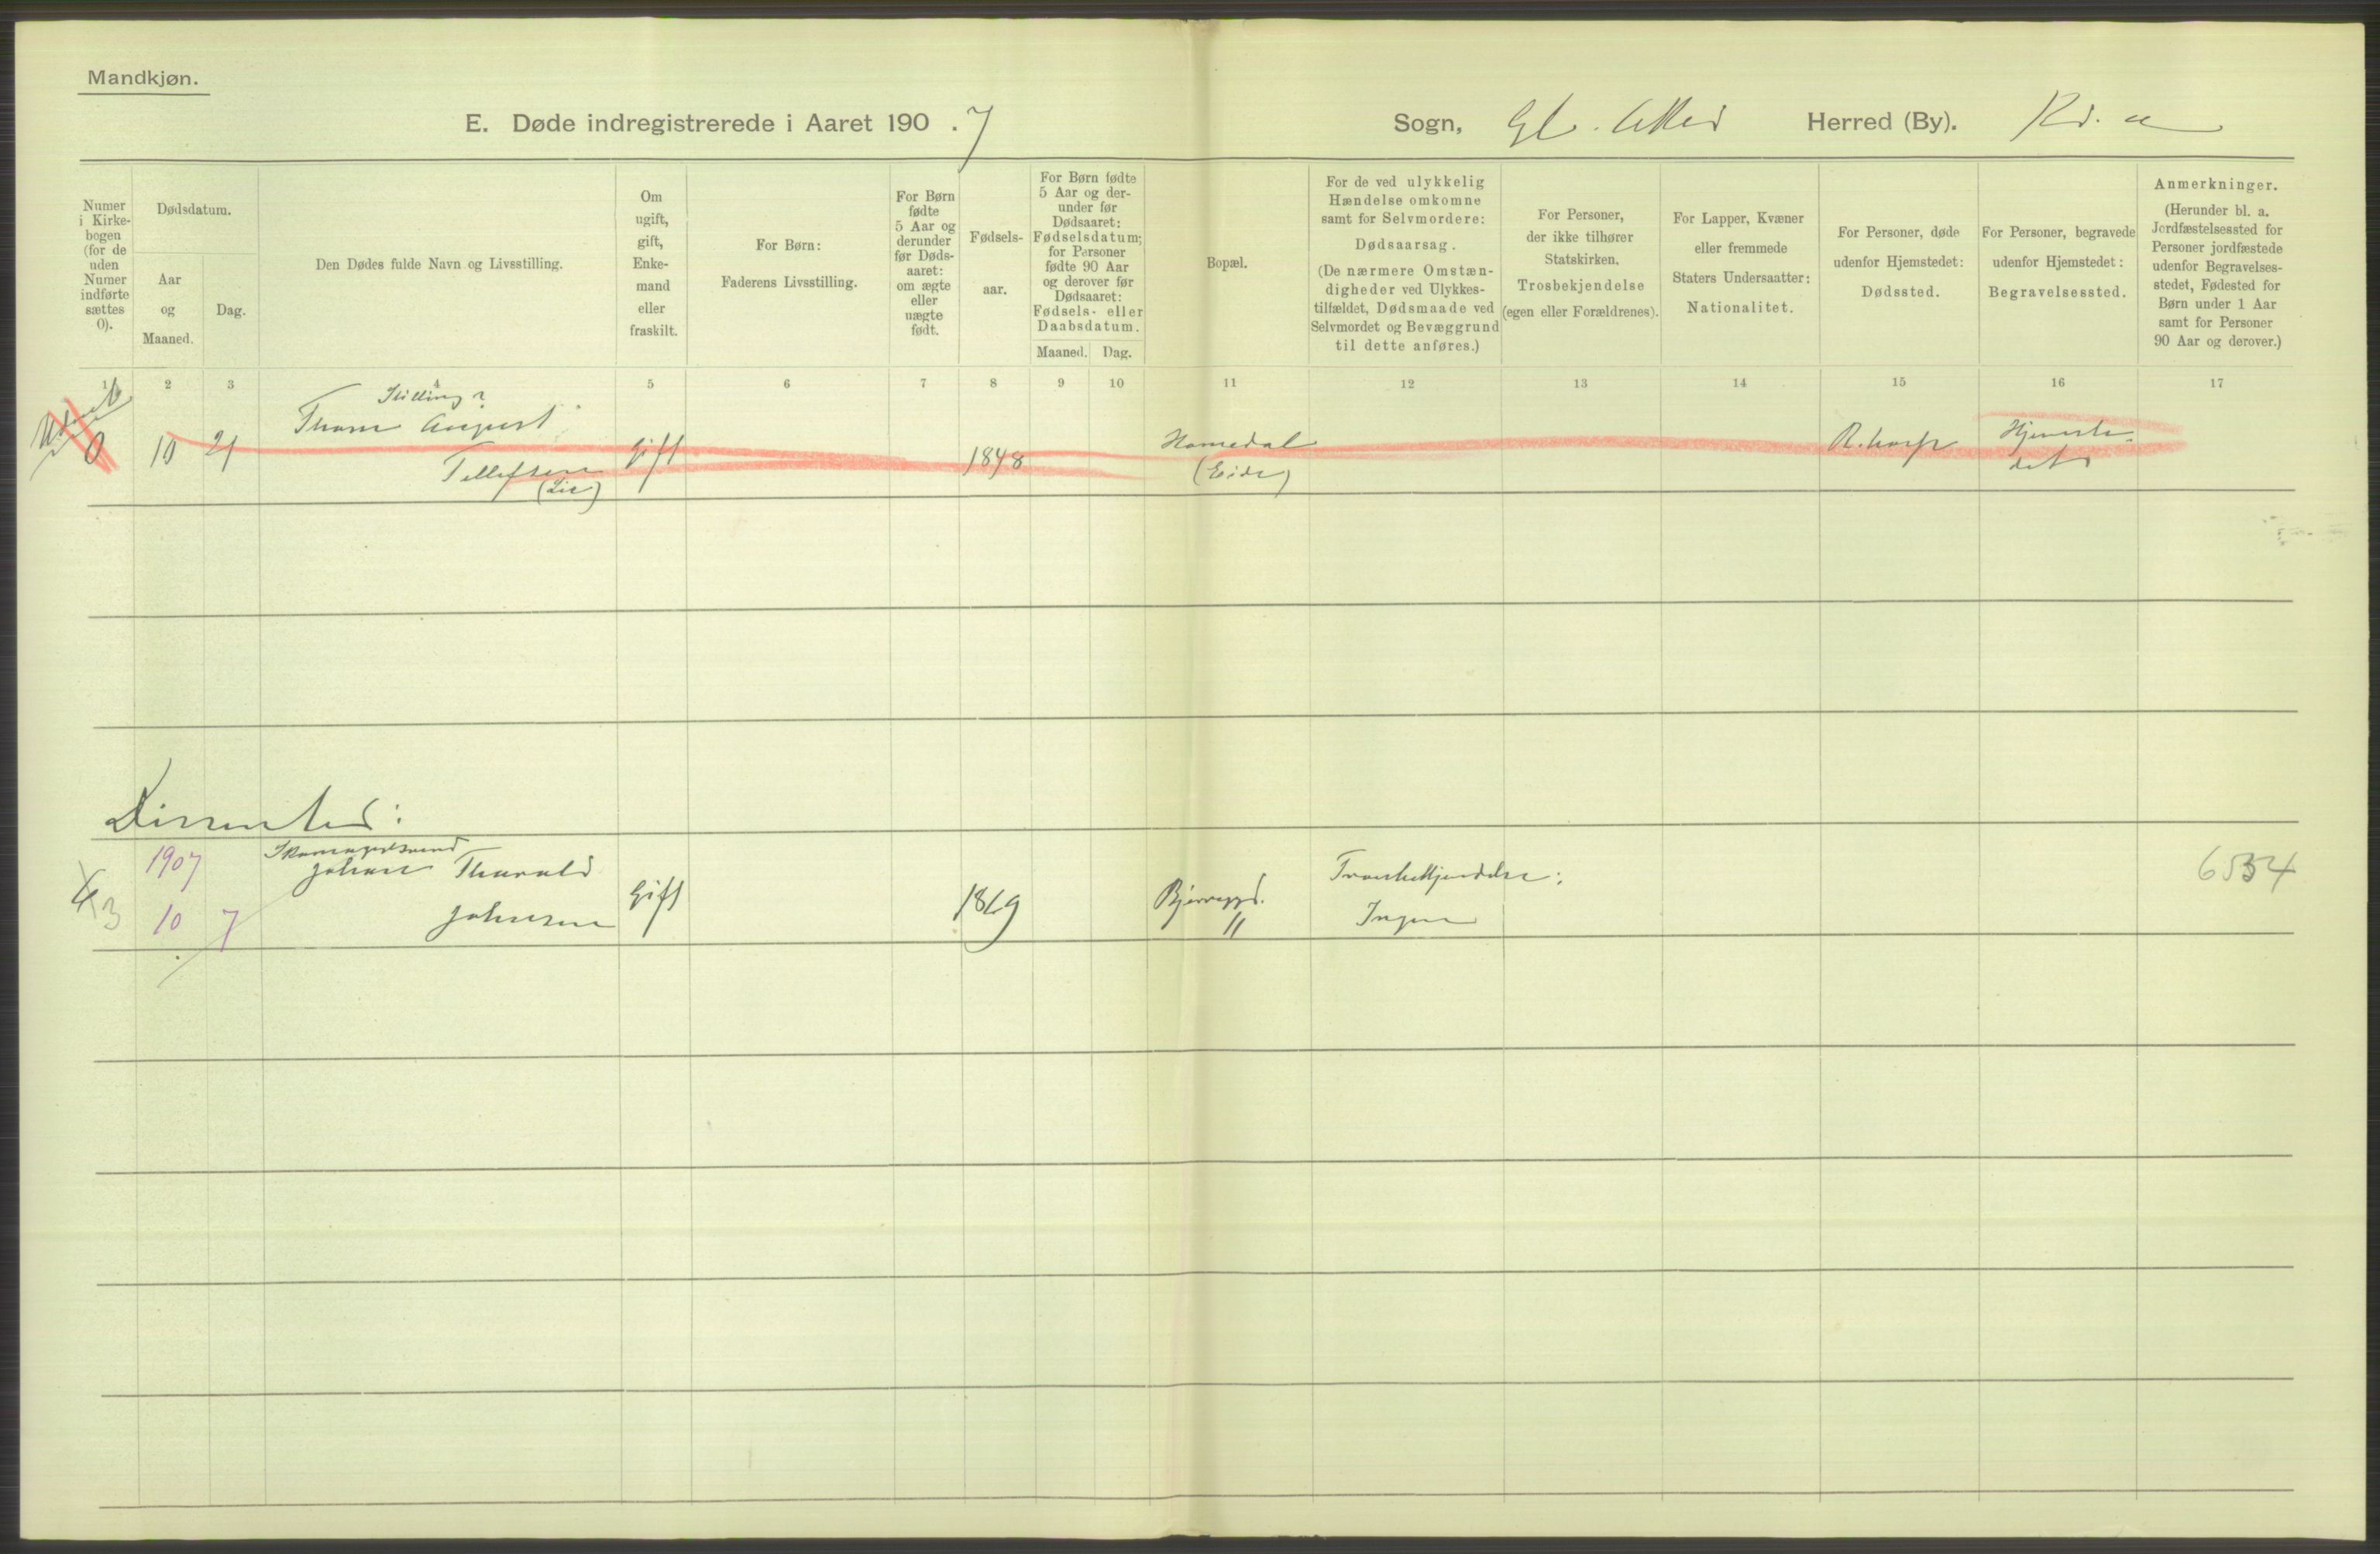 Mandkjøn.
E. Døde indregistrerede i Aaret 190 . 7 Sogn, Gl. Aker Herred (By). Kr. a
Numer
i Kirke-
bogen
(for de
uden
Numer
indførte
sættes
0).
Dødsdatum.
Aar
og
Maaned.
Dag.
Den Dødes fulde Navn og Livsstilling.
Om
ugift,
gift,
Enke-
mand
eller
fraskilt.
For Børn:
Faderens Livsstilling.
For Børn
fødte
5 Aar og
derunder
før Døds-
aaret:
om ægte
eller
uægte
født.
Fødsels-
aar.
For Børn fødte
5 Aar og der-
under før
Dødsaaret:
Fødselsdatum;
for Personer
fødte 90 Aar
og derover før
Dødsaaret:
Fødsels- eller
Daabsdatum.
Maaned. Dag.
Bopæl.
For de ved ulykkelig
Hændelse omkomne
samt for Selvmordere:
Dødsaarsag.
(De nærmere Omstæn-
digheder ved Ulykkes-
tilfældet, Dødsmaade ved
Selvmordet og Bevæggrund
til dette anføres.)
For Personer,
der ikke tilhører
Statskirken.
Trosbekjendelse
(egen eller Forældrenes).
For Lapper, Kvæner
eller fremmede
Staters Undersaatter:
Nationalitet.
For Personer, døde
udenfor Hjemstedet:
Dødssted.
For Personer, begravede
udenfor Hjemstedet:
Begravelsessted.
Anmerkninger.
(Herunder bl. a.
Jordfæstelsessted for
Personer jordfæstede
udenfor Begravelses-
stedet, Fødested for
Børn under 1 Aar
samt for Personer
90 Aar og derover.)
1 2 3 4 5 6 7 8 9 10 11 12 13 14 15 16 17
Stilling?
Thom August
0 10 21 Tellefsen Gift 1848 Homedal R.hosp Hjemste-
(Lie) (Eide) det
Dissenter:
1907 Skomagersvend
Johan Thorvald Trosbekjendelse: 6534
3 10 7 Johnsen Gift 1869 Ingen